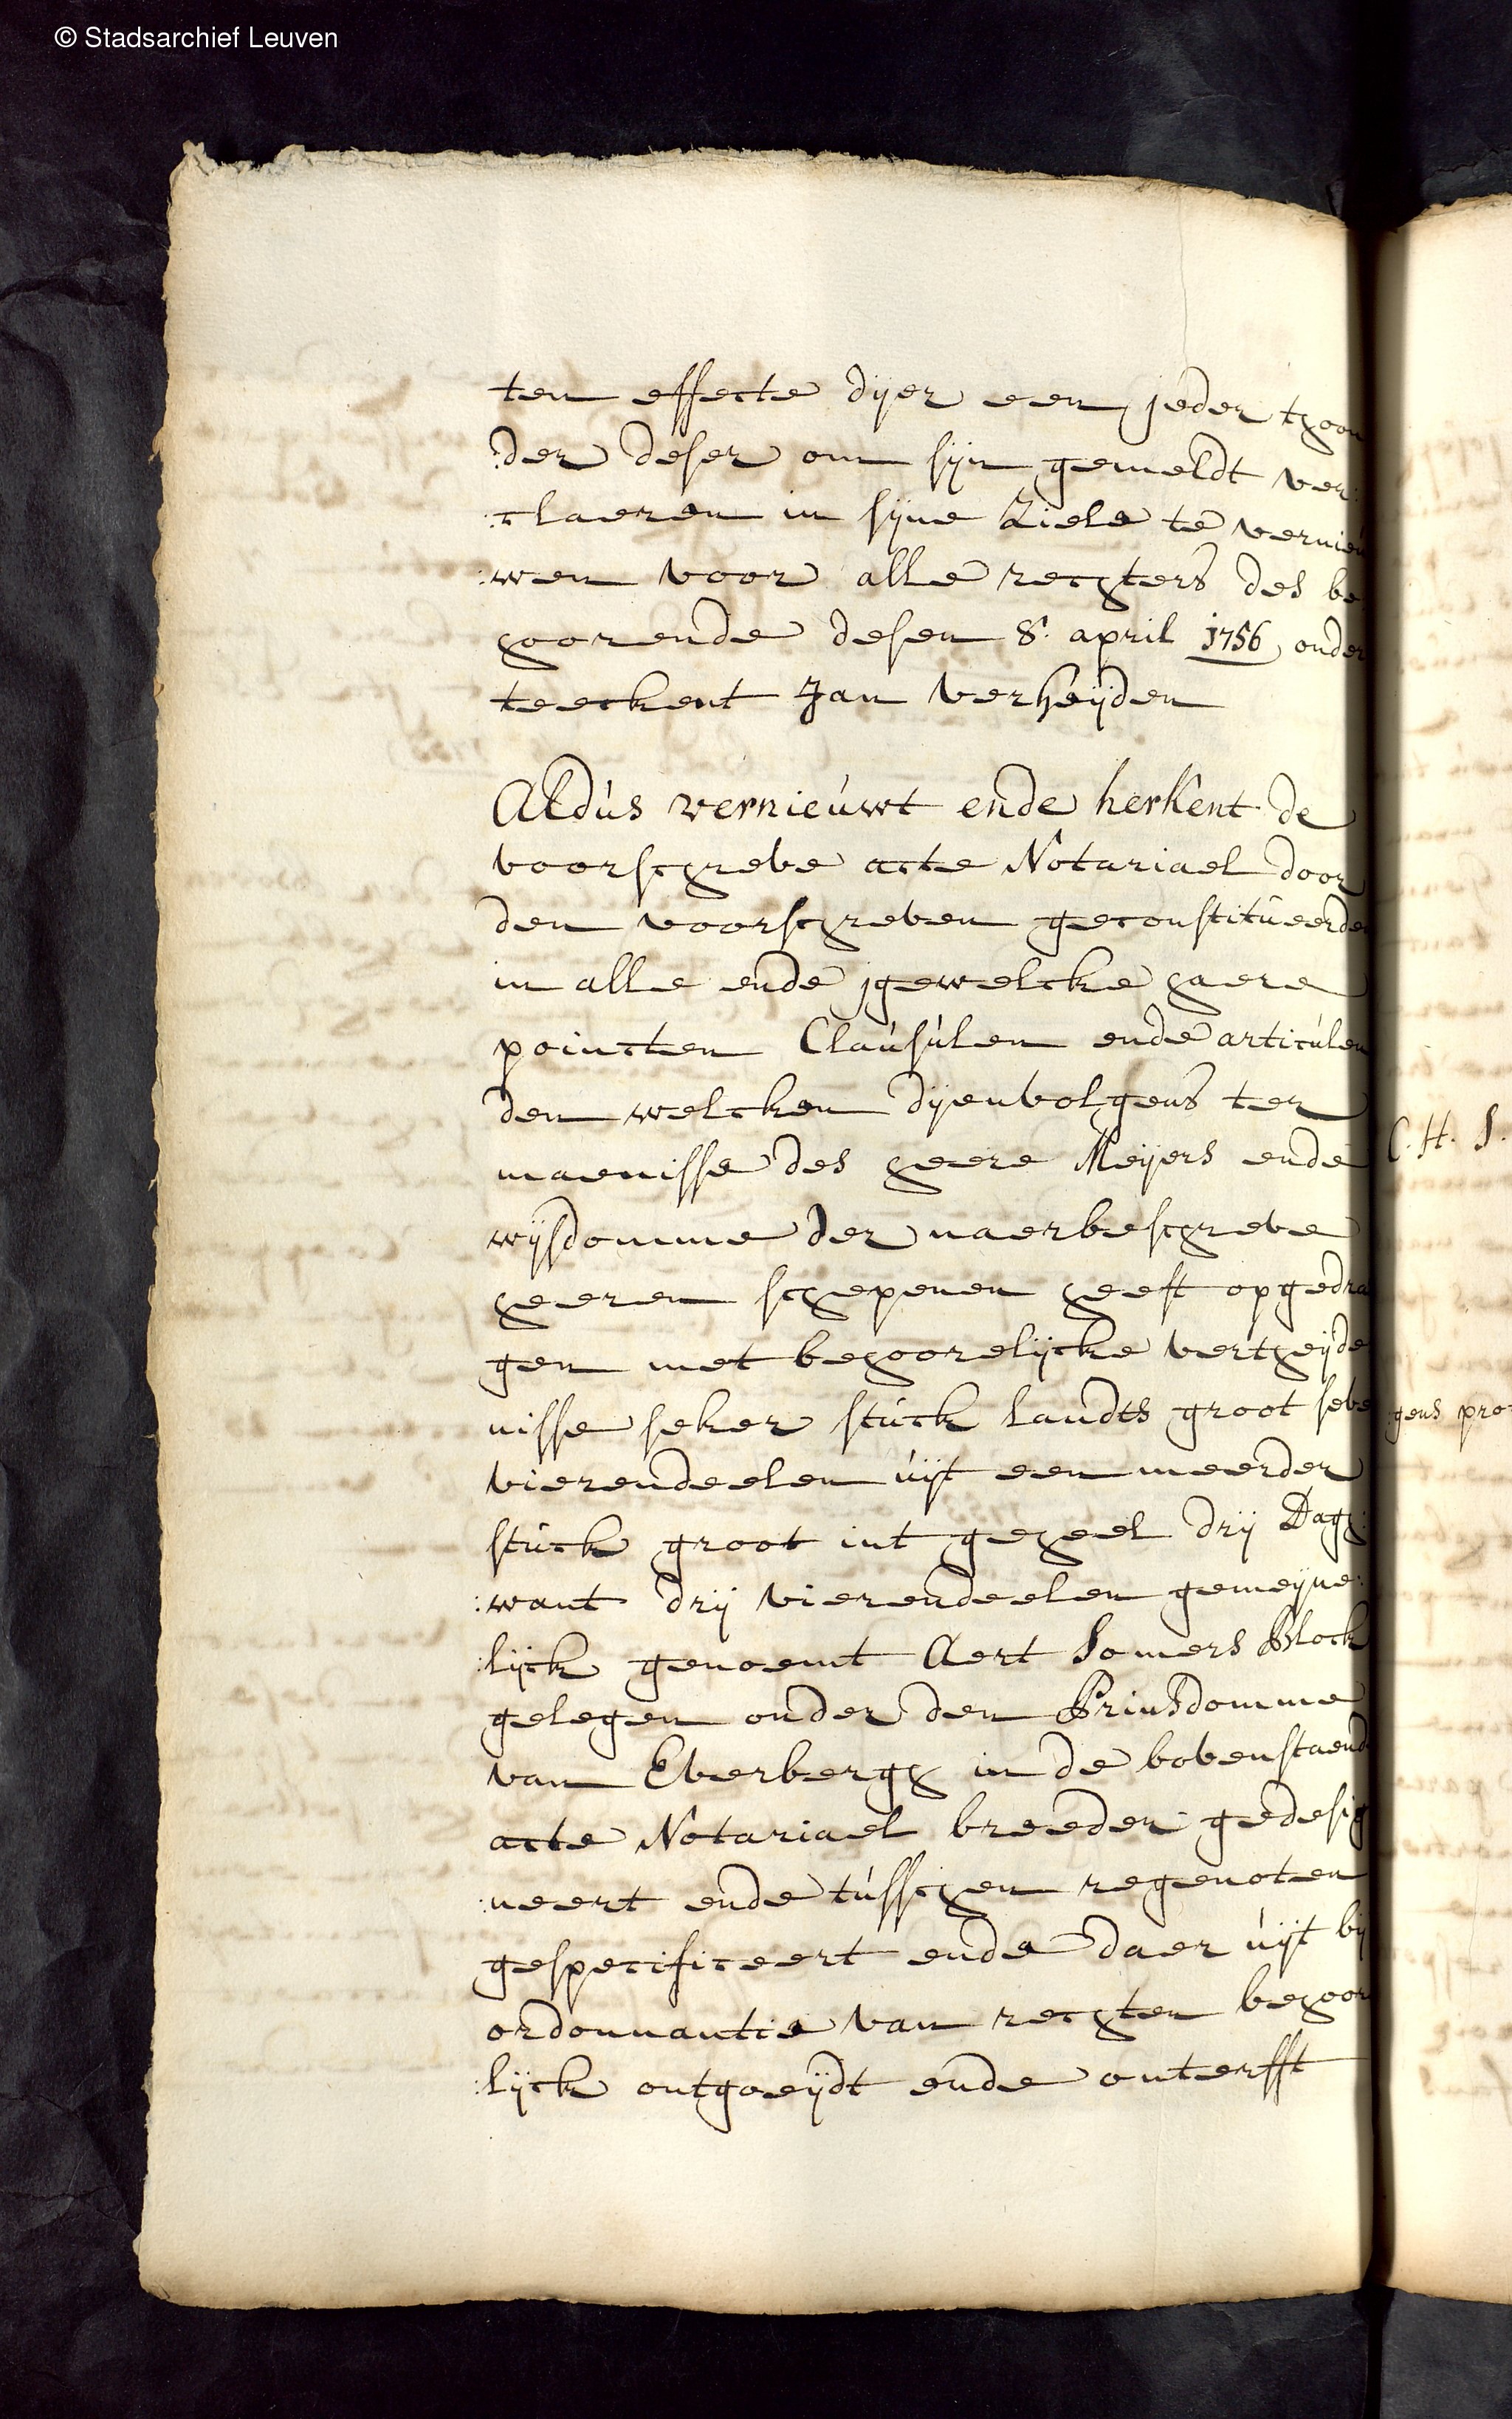 © Stadsarchief Leuven
ten effecte dijer een jeder thoon
:der deser om sijn gemeldt ver:
:claeren in sijne Ziele te vernieú
:wen voor alle rechters des be:
hoorende desen 8. april 1756 onder
teeckent Jan verheijden
Aldús vernieúwt ende herkent de
voorschreve acte Notariael door
den voorschreven geconstitúeerde
in alle ende jgewelcke haere
poincten Claúsúlen ende articúlen
den welcken dijenvolgens ter
maenisse des heere Meijers ende
wijsdomme der naerbeschreve
heeren schepenen heeft opgedra
gen met behoorelijcke verthijde
nisse seker stúck landts groot seve
vierendeelen úijt een meerder
stúck groot int geheel drij Dagh:
:want drij vierendeelen gemeijne:
:lijck genoemt Aert Somers Block
gelegen onder den Prinsdomme
van Everbergh in de bovenstaend
acte Notariael breeder gedesig
:neert ende tússchen regenoten
gespecificeert ende daer úijt bij
ordonnantie van rechten behoor
:lijck ontgoeijdt ende onterfft
C. H. S.
:gens pro